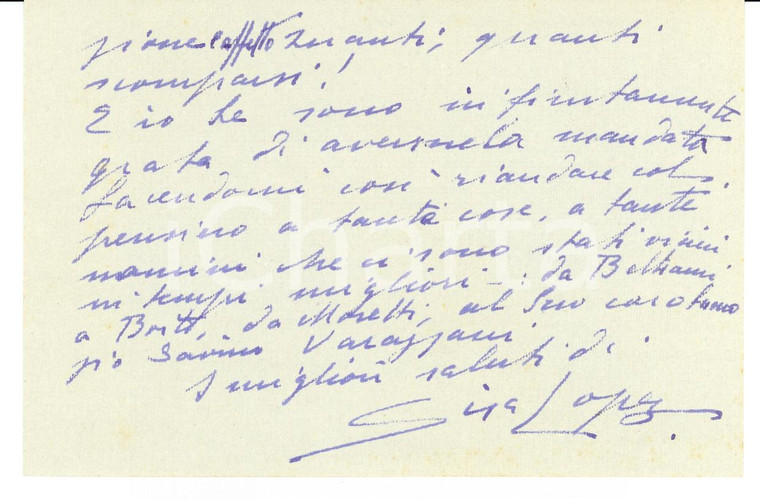 zione e affetto. Quanti, quanti
scomparsi!
E io Le sono infinitamente
grata di avermela mandata
facendomi così riandare col
pensiero a tante cose, a tante
uomini che ci sono stati vicini
in tempi migliori -: da Beltrami
a Boito, da Moretti, al Suo caro buono
zio Savino Varazzani.
I migliori saluti di
Sisa Lopez
iCharta